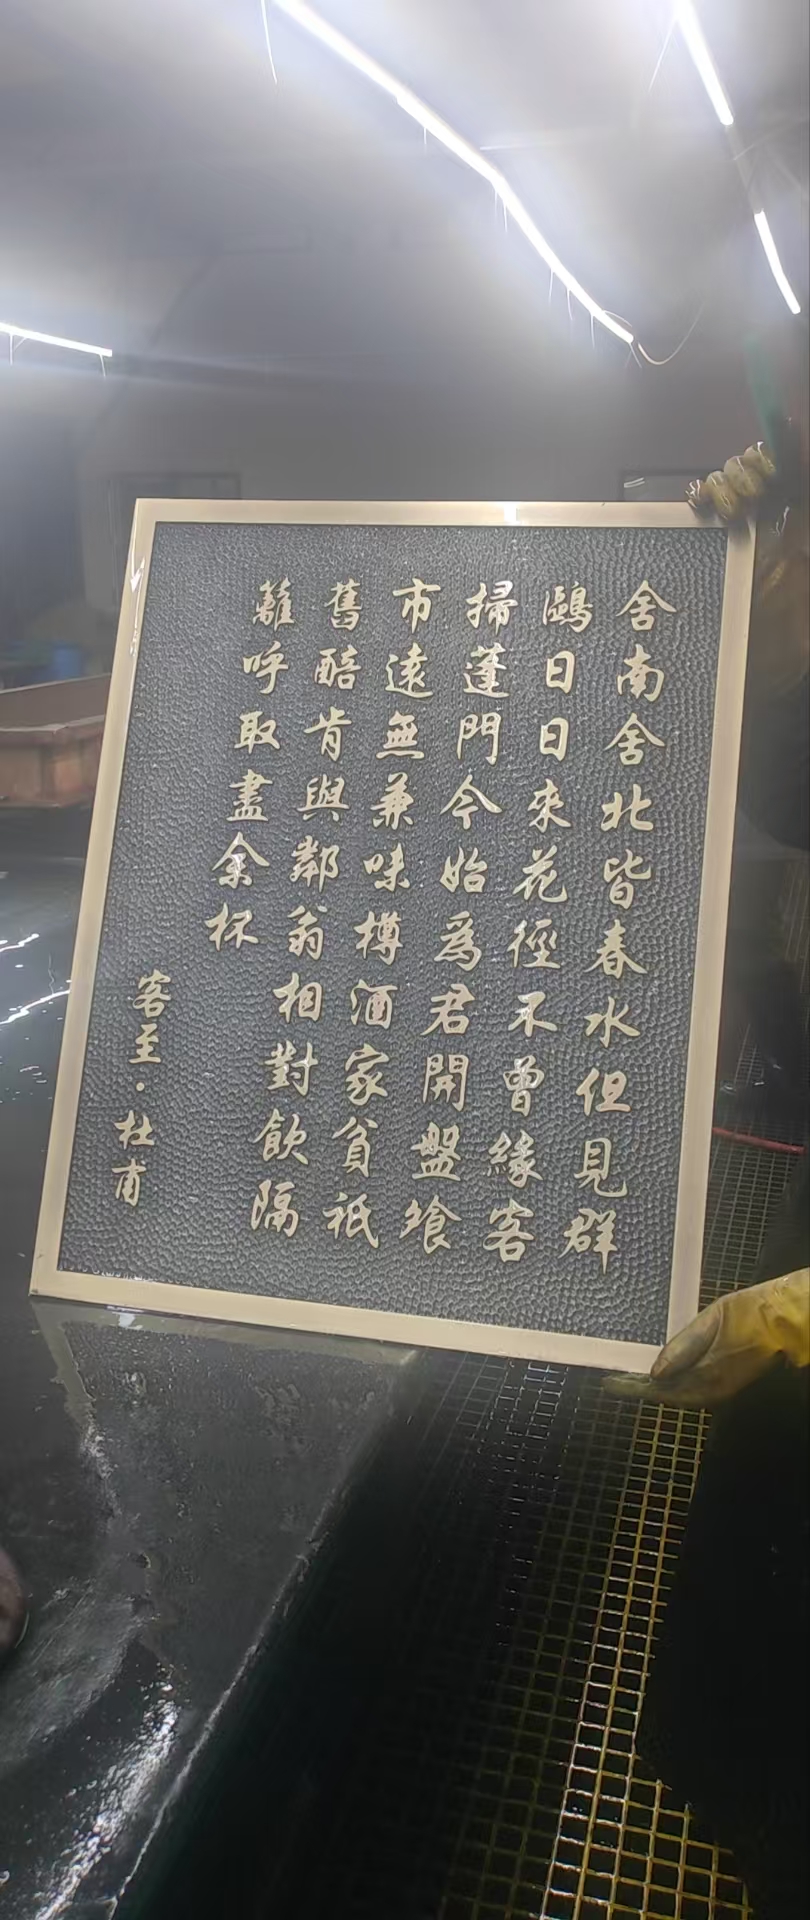 舍南舍北皆春水但見群
鷗日日來花徑不曾緣客
掃蓬門今始為君開盤飧
市遠無兼味樽酒家貧祇
舊醅肯與鄰翁相對飲隔
籬呼取盡余杯
客至·杜甫